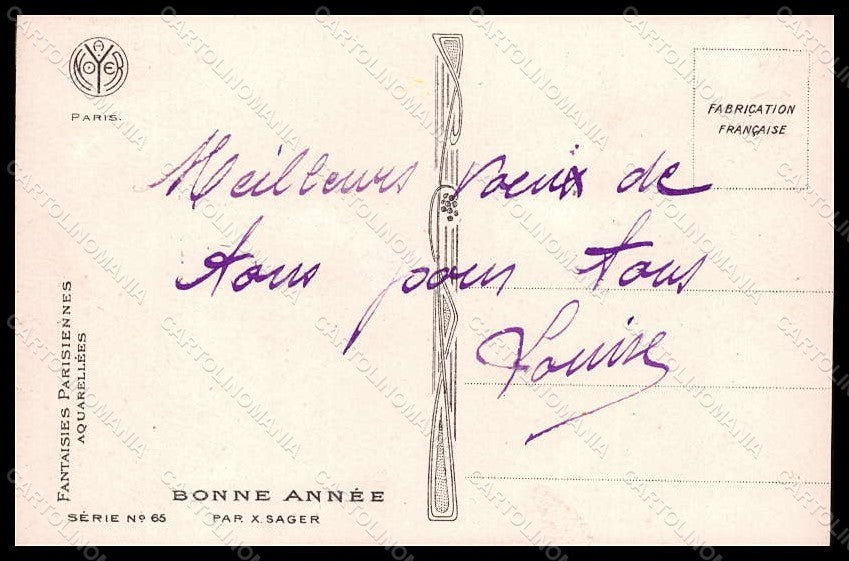 A. NOYER
PARIS.
FABRICATION
FRANÇAISE
Meilleurs voeux de
tous pour tous
Louise
FANTAISIES PARISIENNES
AQUARELLÉES
BONNE ANNÉE
SÉRIE Nº 65 PAR X. SAGER
CARTOLINOMANIA